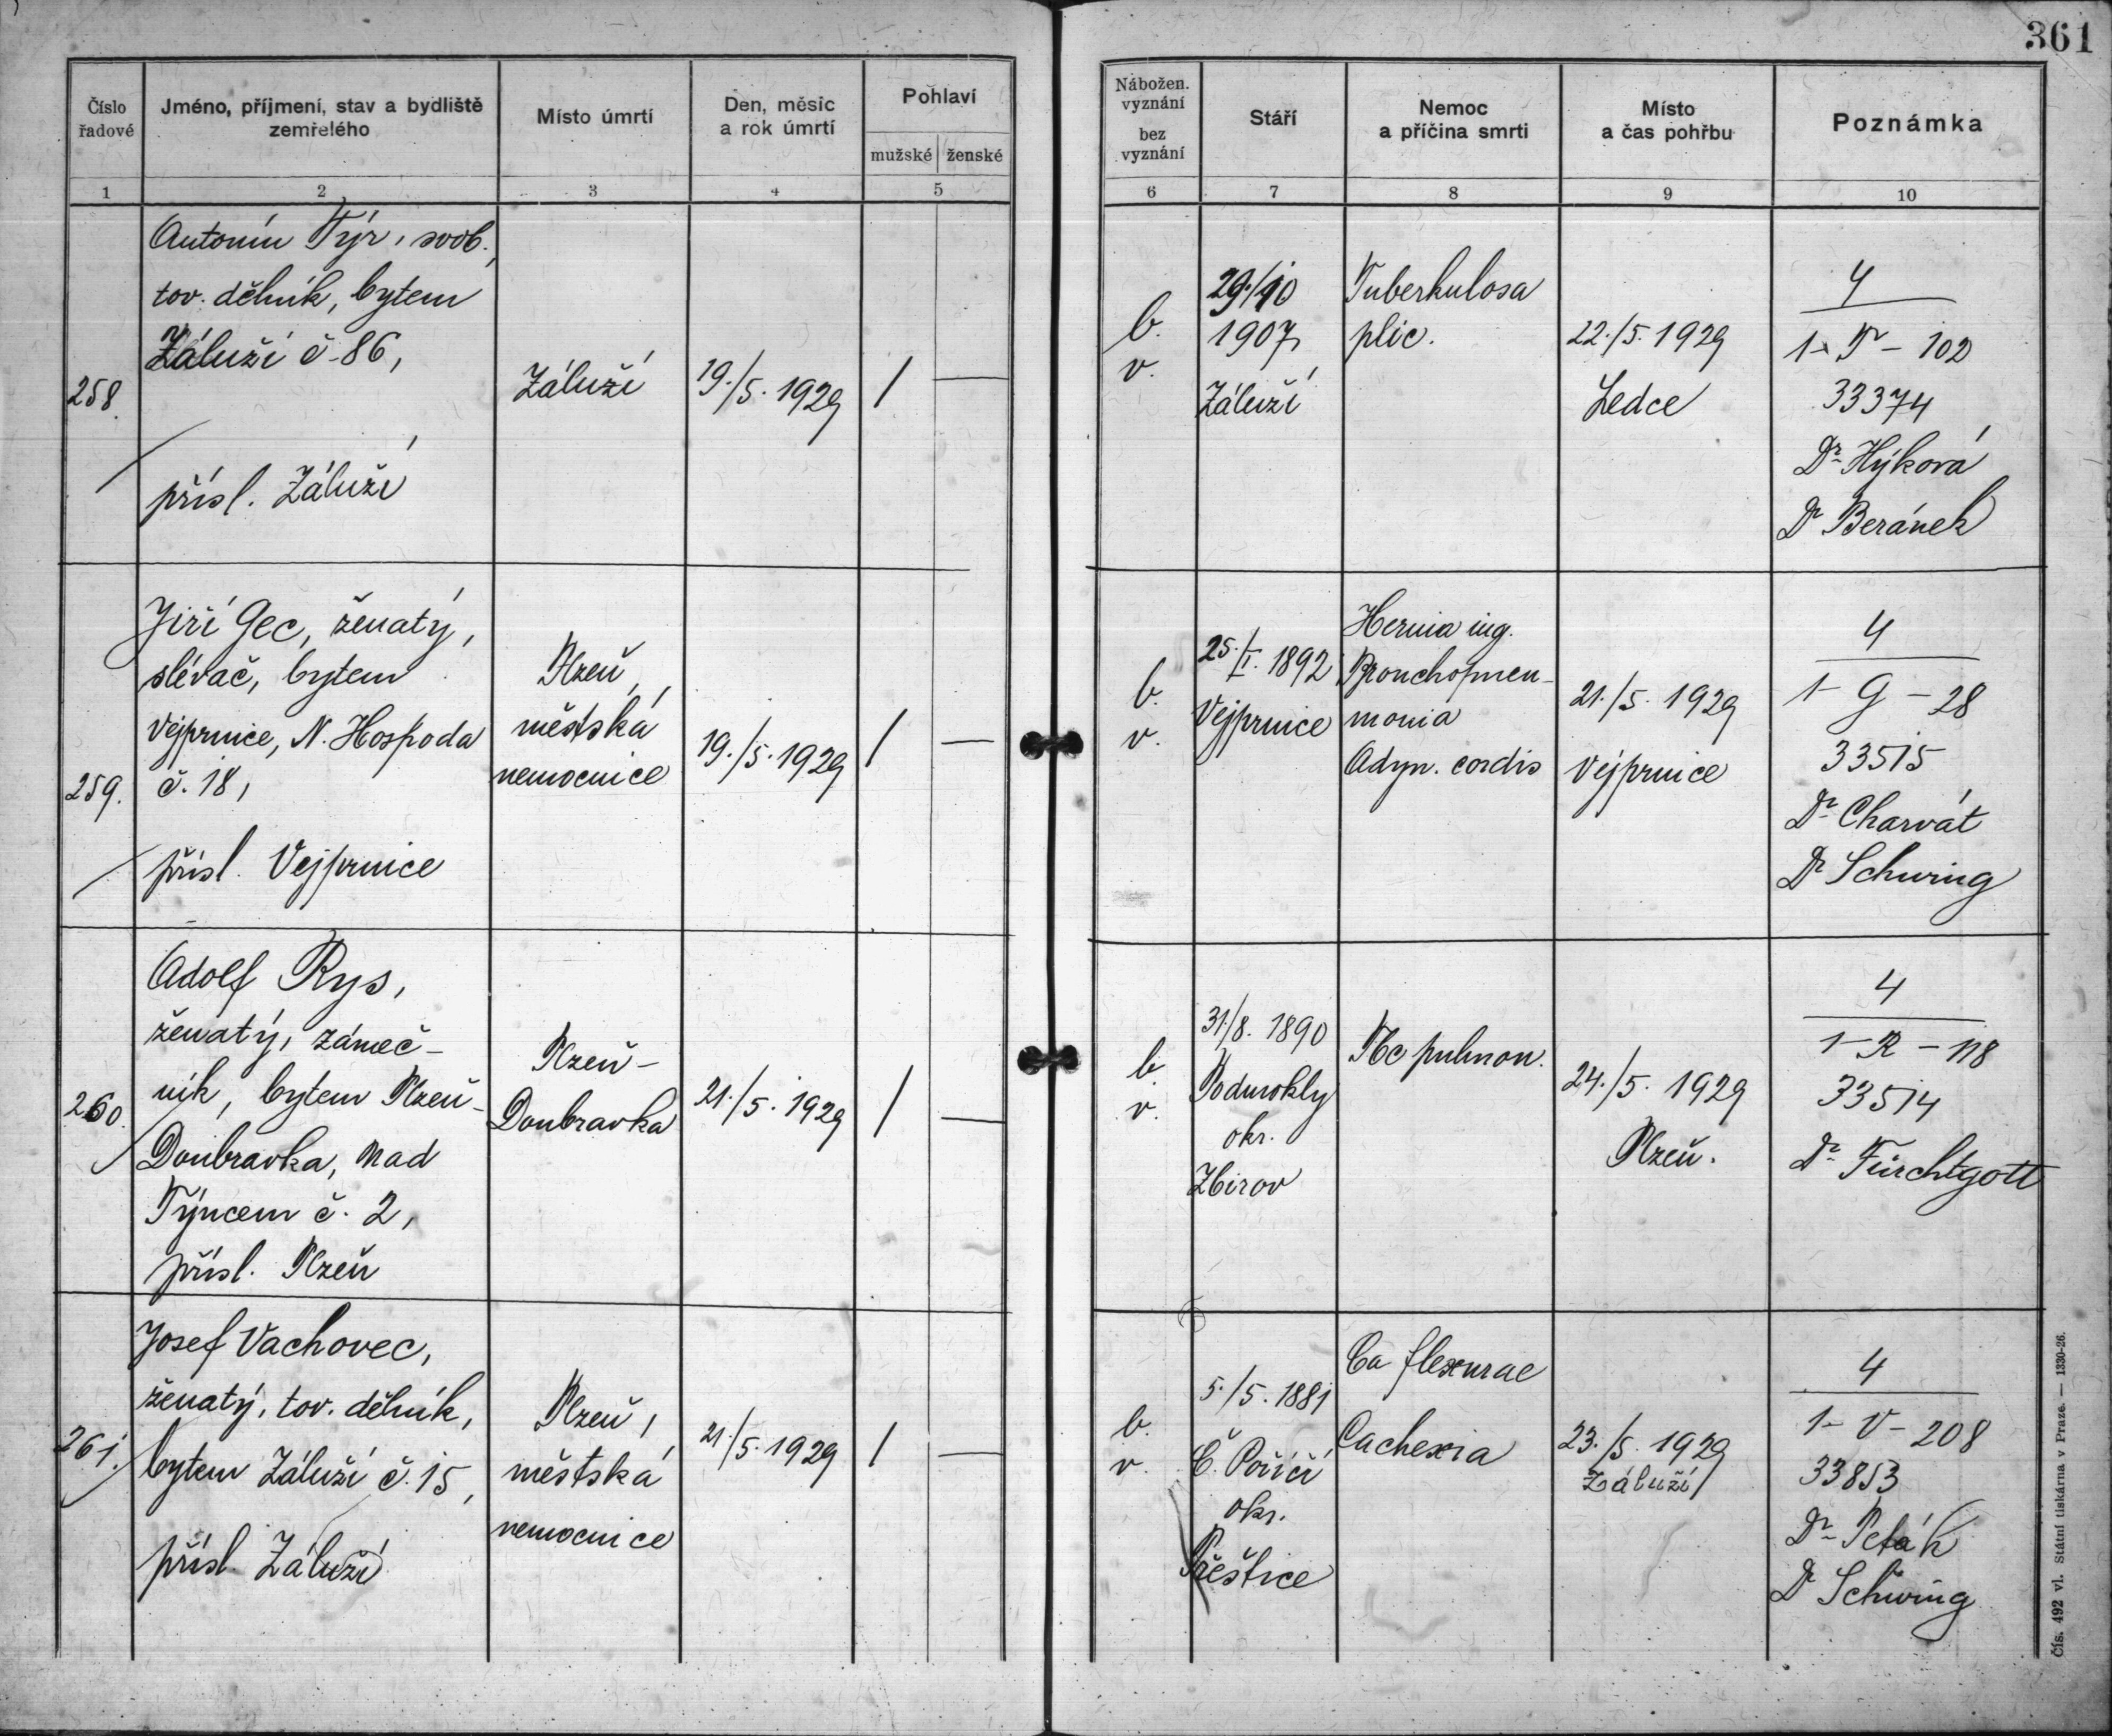 361
Číslo řadové
Jméno, příjmení, stav a bydliště zemřelého
Místo úmrtí
Den, měsíc a rok úmrtí
Pohlaví
mužské
ženské
Nábožen. vyznání
bez vyznání
Stáří
Nemoc a příčina smrti
Místo a čas pohřbu
Poznámka
1
2
3
4
5
6
7
8
9
10
258.
Antonín Týr, svob.,
tov. dělník, bytem
Záluží č. 86,
přísl. Záluží
Záluží
19./5. 1929
/ —
b.
v.
29./10
1907
Záluží
Tuberkulosa
plic.
22./5. 1929
Ledce
4
1 - T - 102
33374
Dr. Hýková
Dr Beránek
259.
Jiří Gec, ženatý,
slévač, bytem
Vejprnice, N. Hospoda
č. 18,
přísl. Vejprnice
Plzeň,
městská
nemocnice
19./5. 1929
/ —
b.
v.
25./I. 1892
Vejprnice
Hernia ing.
Bronchopneu-
monia
Adyn. cordis
21./5. 1929
Vejprnice
4
1 - G - 28
33515
Dr. Charvát
Dr Schwing
260.
Adolf Rys,
ženatý, zámeč-
ník, bytem Plzeň-
Doubravka, nad
Týncem č. 2,
přísl. Plzeň
Plzeň -
Doubravka
21./5. 1929
/ —
b.
v.
31./8. 1890
Podmokly
okr.
Zbirov
Tbc pulmon.
24./5. 1929
Plzeň.
4
1 - R - 118
33514
Dr. Fürchtgott
261.
Josef Vachovec,
ženatý, tov. dělník,
bytem Záluží č. 15,
přísl. Záluží
Plzeň,
městská
nemocnice
21./5. 1929
/ —
b.
v.
5./5. 1881
Č. Poříčí
okr.
Přeštice
Ca flexurae
Cachexia
23./5. 1929
Záluží
4
1 - V - 208
33853
Dr. Peták
Dr Schwing
Čís. 492 vl. Státní tiskárna v Praze. — 1330-26.